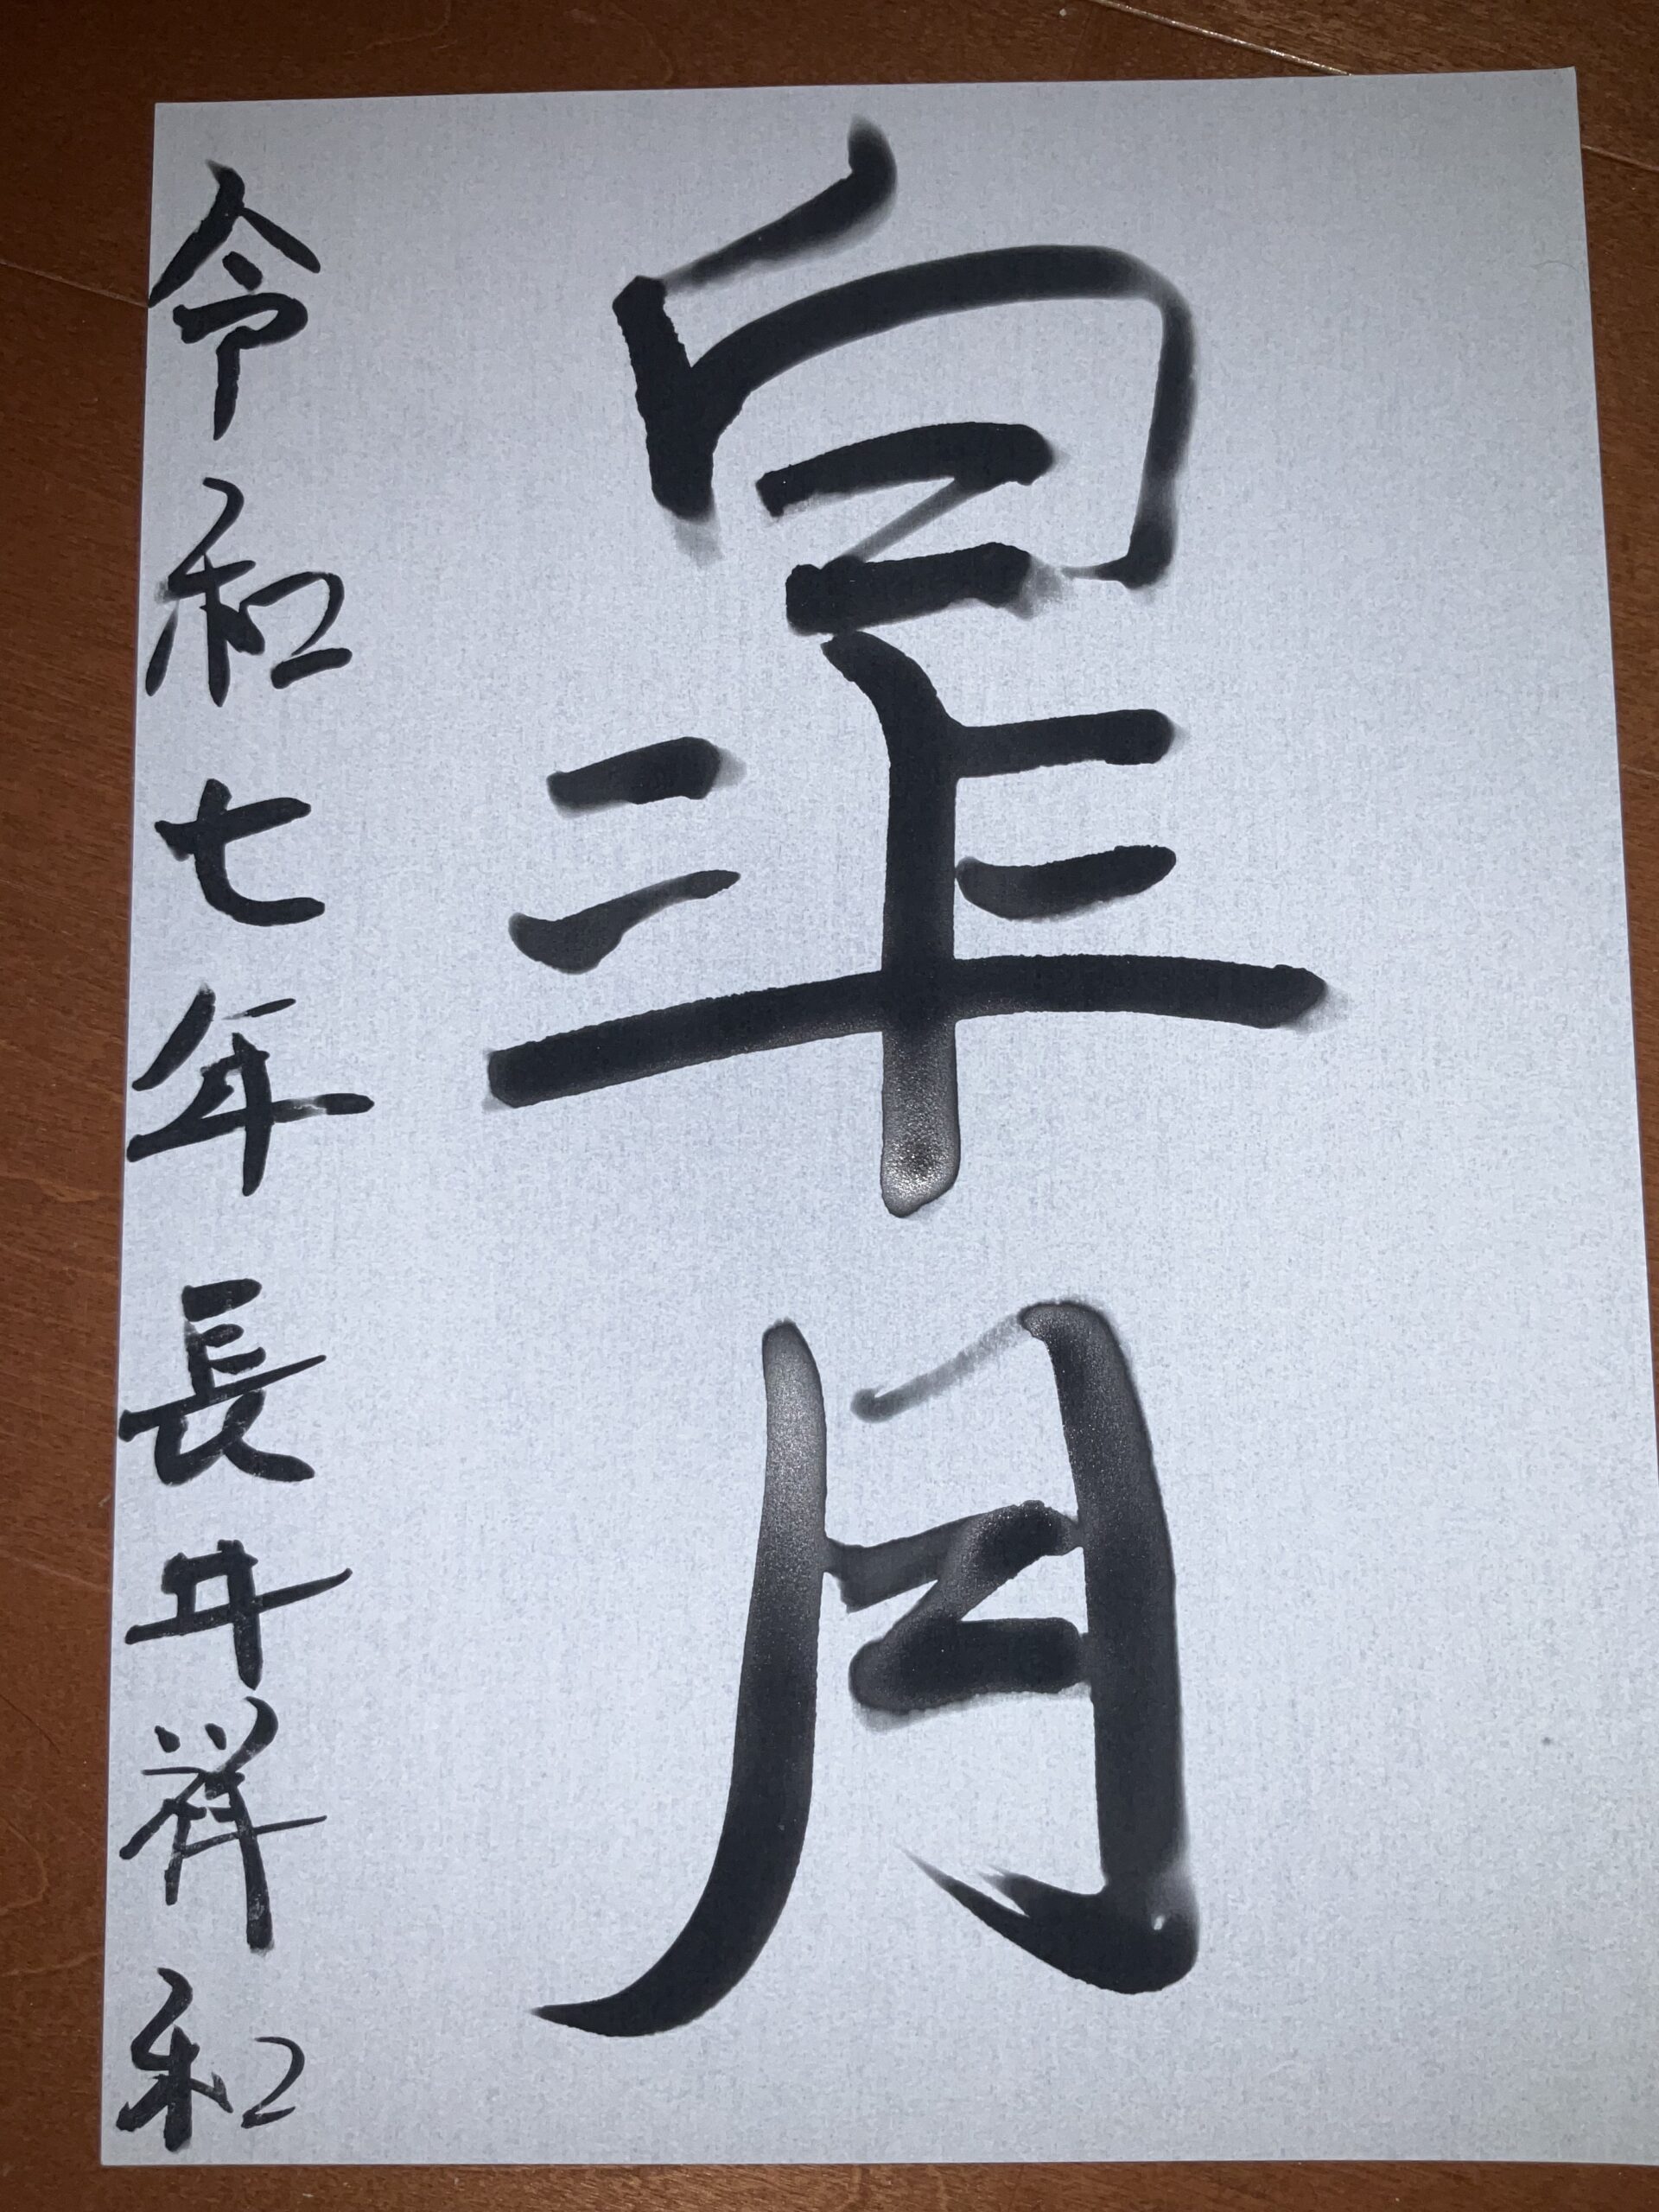 皐月
令和七年長井祥和